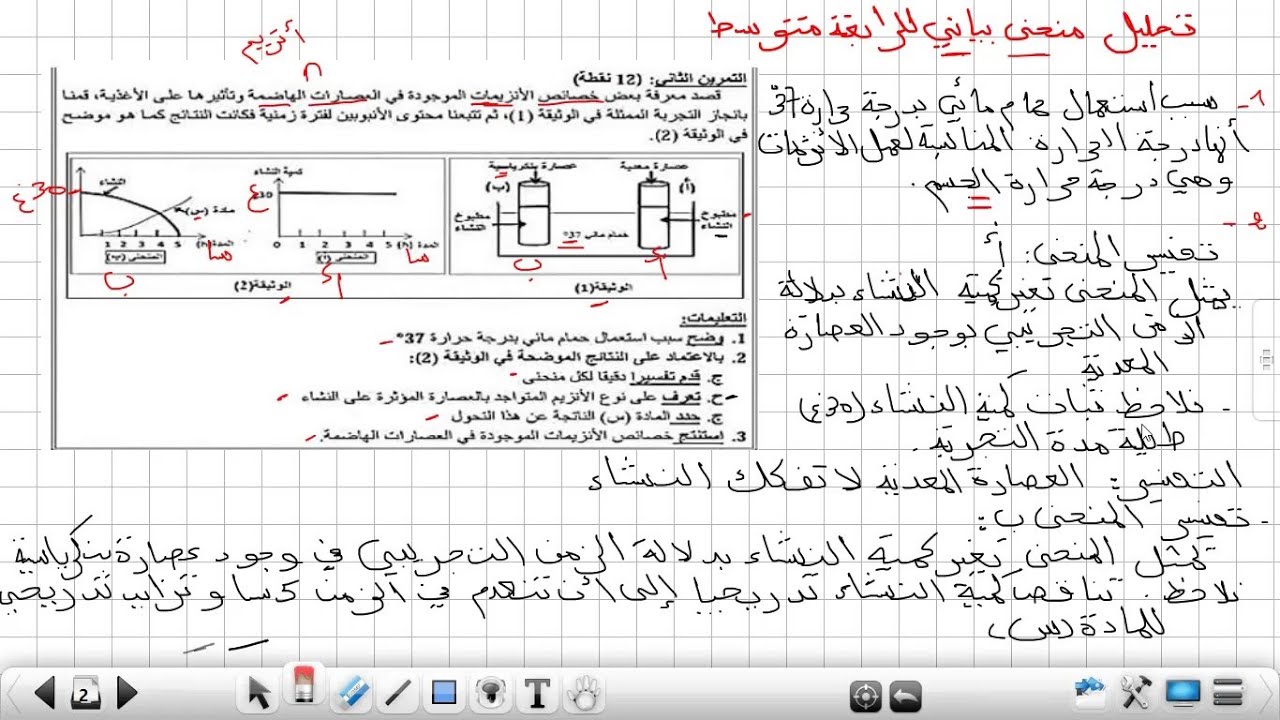 تحليل منحنى بياني للرابعة متوسط
أنزيم
التمرين الثاني: (12 نقطة)
قصد معرفة بعض خصائص الأنزيمات الموجودة في العصارات الهاضمة وتأثيرها على الأغذية، قمنا
بانجاز التجربة الممثلة في الوثيقة (1)، ثم تتبعنا محتوى الأنبوبين لفترة زمنية فكانت النتائج كما هو موضح
في الوثيقة (2).
عصارة معدية
عصارة بنكرياسية
(أ)
(ب)
مطبوخ النشاء
مطبوخ النشاء
حمام مائي 37°
أ
ب
الوثيقة(1)
كمية النشاء
30غ
1 2 3 4 5 (h) المدة
سا
المنحنى (أ)
أ
30غ
النشاء
مادة (س)
1 2 3 4 5 (h) المدة
سا
المنحنى (ب)
ب
الوثيقة(2)
التعليمات:
1. وضح سبب استعمال حمام مائي بدرجة حرارة 37°
2. بالاعتماد على النتائج الموضحة في الوثيقة (2):
ج. قدم تفسيرا دقيقا لكل منحنى
ح. تعرف على نوع الأنزيم المتواجد بالعصارة المؤثرة على النشاء
ج. حدد المادة (س) الناتجة عن هذا التحول
3. إستنتج خصائص الأنزيمات الموجودة في العصارات الهاضمة.
1- سبب استعمال حمام مائي بدرجة حرارة 37°
أنها درجة الحرارة المناسبة لعمل الأنزيمات
وهي درجة حرارة الجسم.
2-
تفسير المنحنى: أ
يمثل المنحنى تغير كمية النشاء بدلالة
الزمن التجريبي بوجود العصارة
المعدية
- نلاحظ ثبات كمية النشاء (30غ)
طيلة مدة التجربة.
التفسير: العصارة المعدية لا تفكك النشاء
- تفسير المنحنى ب:
يمثل المنحنى تغير كمية النشاء بدلالة الزمن التجريبي في وجود عصارة بنكرياسية
نلاحظ. تناقص كمية النشاء تدريجيا إلى أن تنعدم في الزمن 5سا وتزايد تدريجي
للمادة (س)
2
T